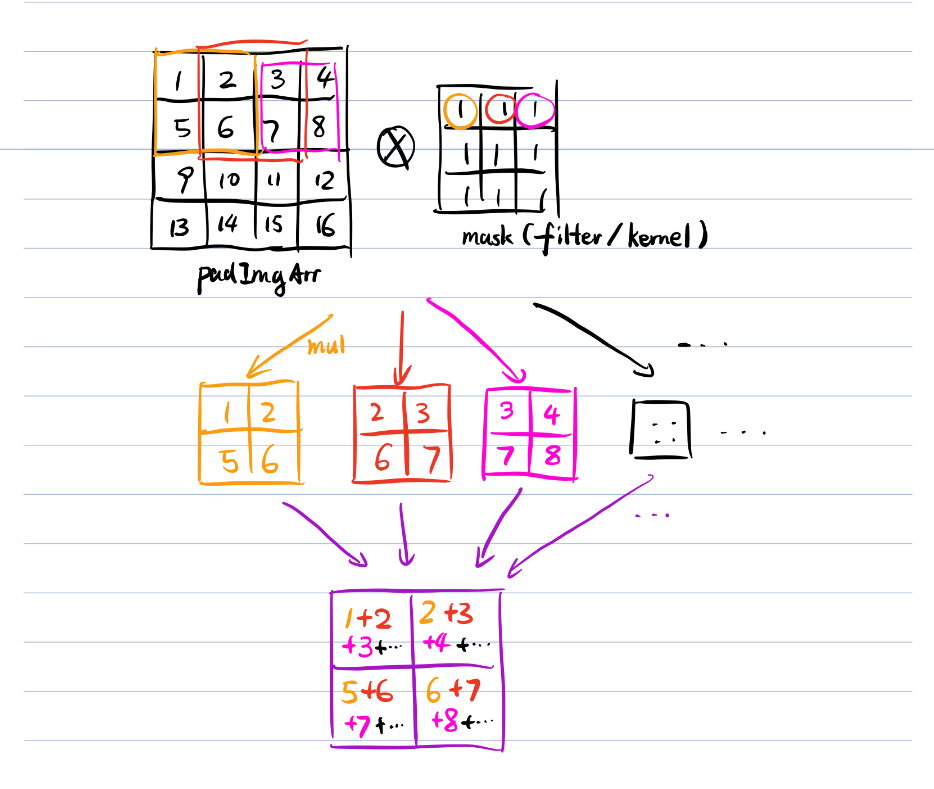 1 2 3 4
5 6 7 8
9 10 11 12
13 14 15 16
padImgArr
⊗
1 1 1
1 1 1
1 1 1
mask (filter/kernel)
mul
...
1 2
5 6
2 3
6 7
3 4
7 8
::
...
...
1+2
+3+...
2+3
+4+...
5+6
+7+...
6+7
+8+...